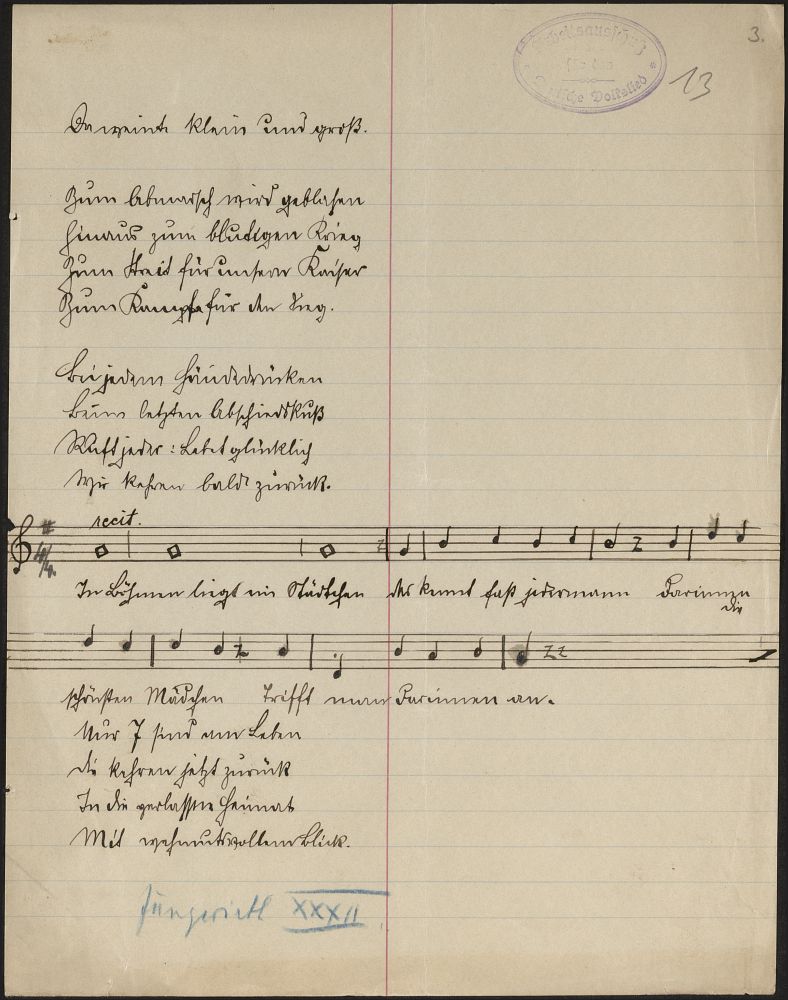 3.
Arbeitsausschuß
für das
Deutsche Volkslied
13
Da weinte klein und groß.
Zum Abmarsch wird geblasen
Hinaus zum blutigen Krieg
Zum Streit für unsern Kaiser
Zum Kampfe für den Sieg.
Bei jedem Händedrücken
Beim letzten Abschiedskuß
Ruft jeder: Lebet glücklich
Wir kehren bald zurück.
recit.
4/4
In Böhmen liegt ein Städtchen das kennt fast jedermann Darinnen
die
schönsten Mädchen Trifft man darinnen an.
Nur 7 sind am Leben
die kehren jetzt zurück
In die verlassne Heimat
Mit wehmutsvollem Blick.
XXXII